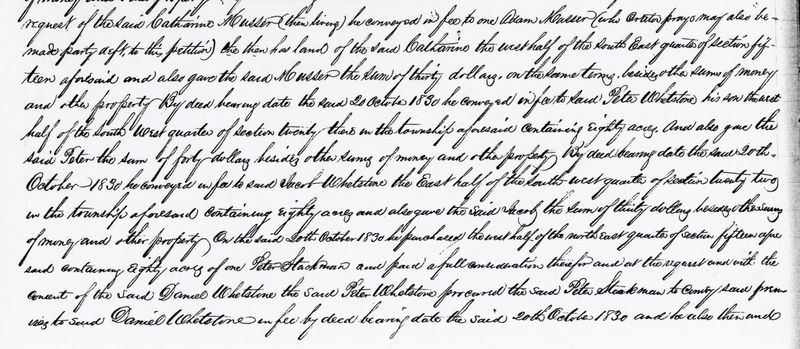 request of the said Catharine Musser (then living) he conveyed in fee to one Adam Musser (who orator prays may also be
made party deft, to this petition) the then has land of the said Catharine the west half of the South East quarter of section fif-
teen aforesaid and also gave the said Musser the sum of thirty dollars, on the same terms, besides other sums of money
and other property By deed bearing date the said 20 October 1830 he conveyed in fee to said Peter Whetstone his son the west
half of the south West quarter of section twenty three in the township aforesaid containing Eighty acres. And also gave the
said Peter the sum of forty dollars besides other sums of money and other property By deed bearing date the said 20th
October 1830 he conveyed in fee to said Jacob Whetstone the East half of the south west quarter of section twenty two
in the township aforesaid containing Eighty acres and also gave the said Jacob the sum of thirty dollars besides other sums
of money and other property On the said 20th October 1830 he purchased the west half of the north East quarter of section fifteen afore
said containing Eighty acres of one Peter Stackman and paid a full consideration therefor and at the request and with the
consent of the said Daniel Whetstone the said Peter Whetstone procured the said Peter Steakman to convey said prem
ises to said Daniel Whetstone in fee by deed bearing date the said 20th October 1830 and he also then and